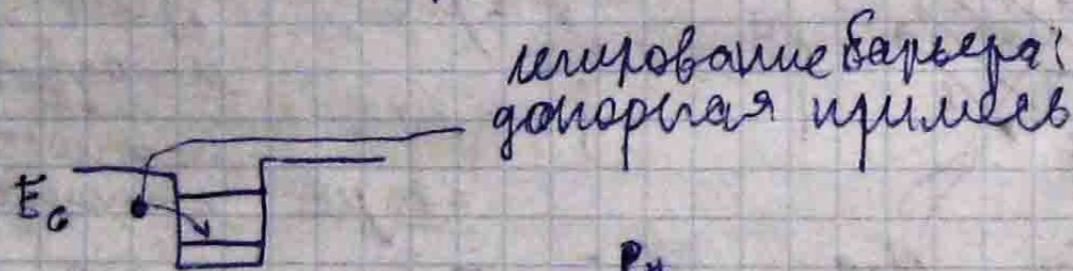 легирование барьера:
донорная примесь
E_G
P_H